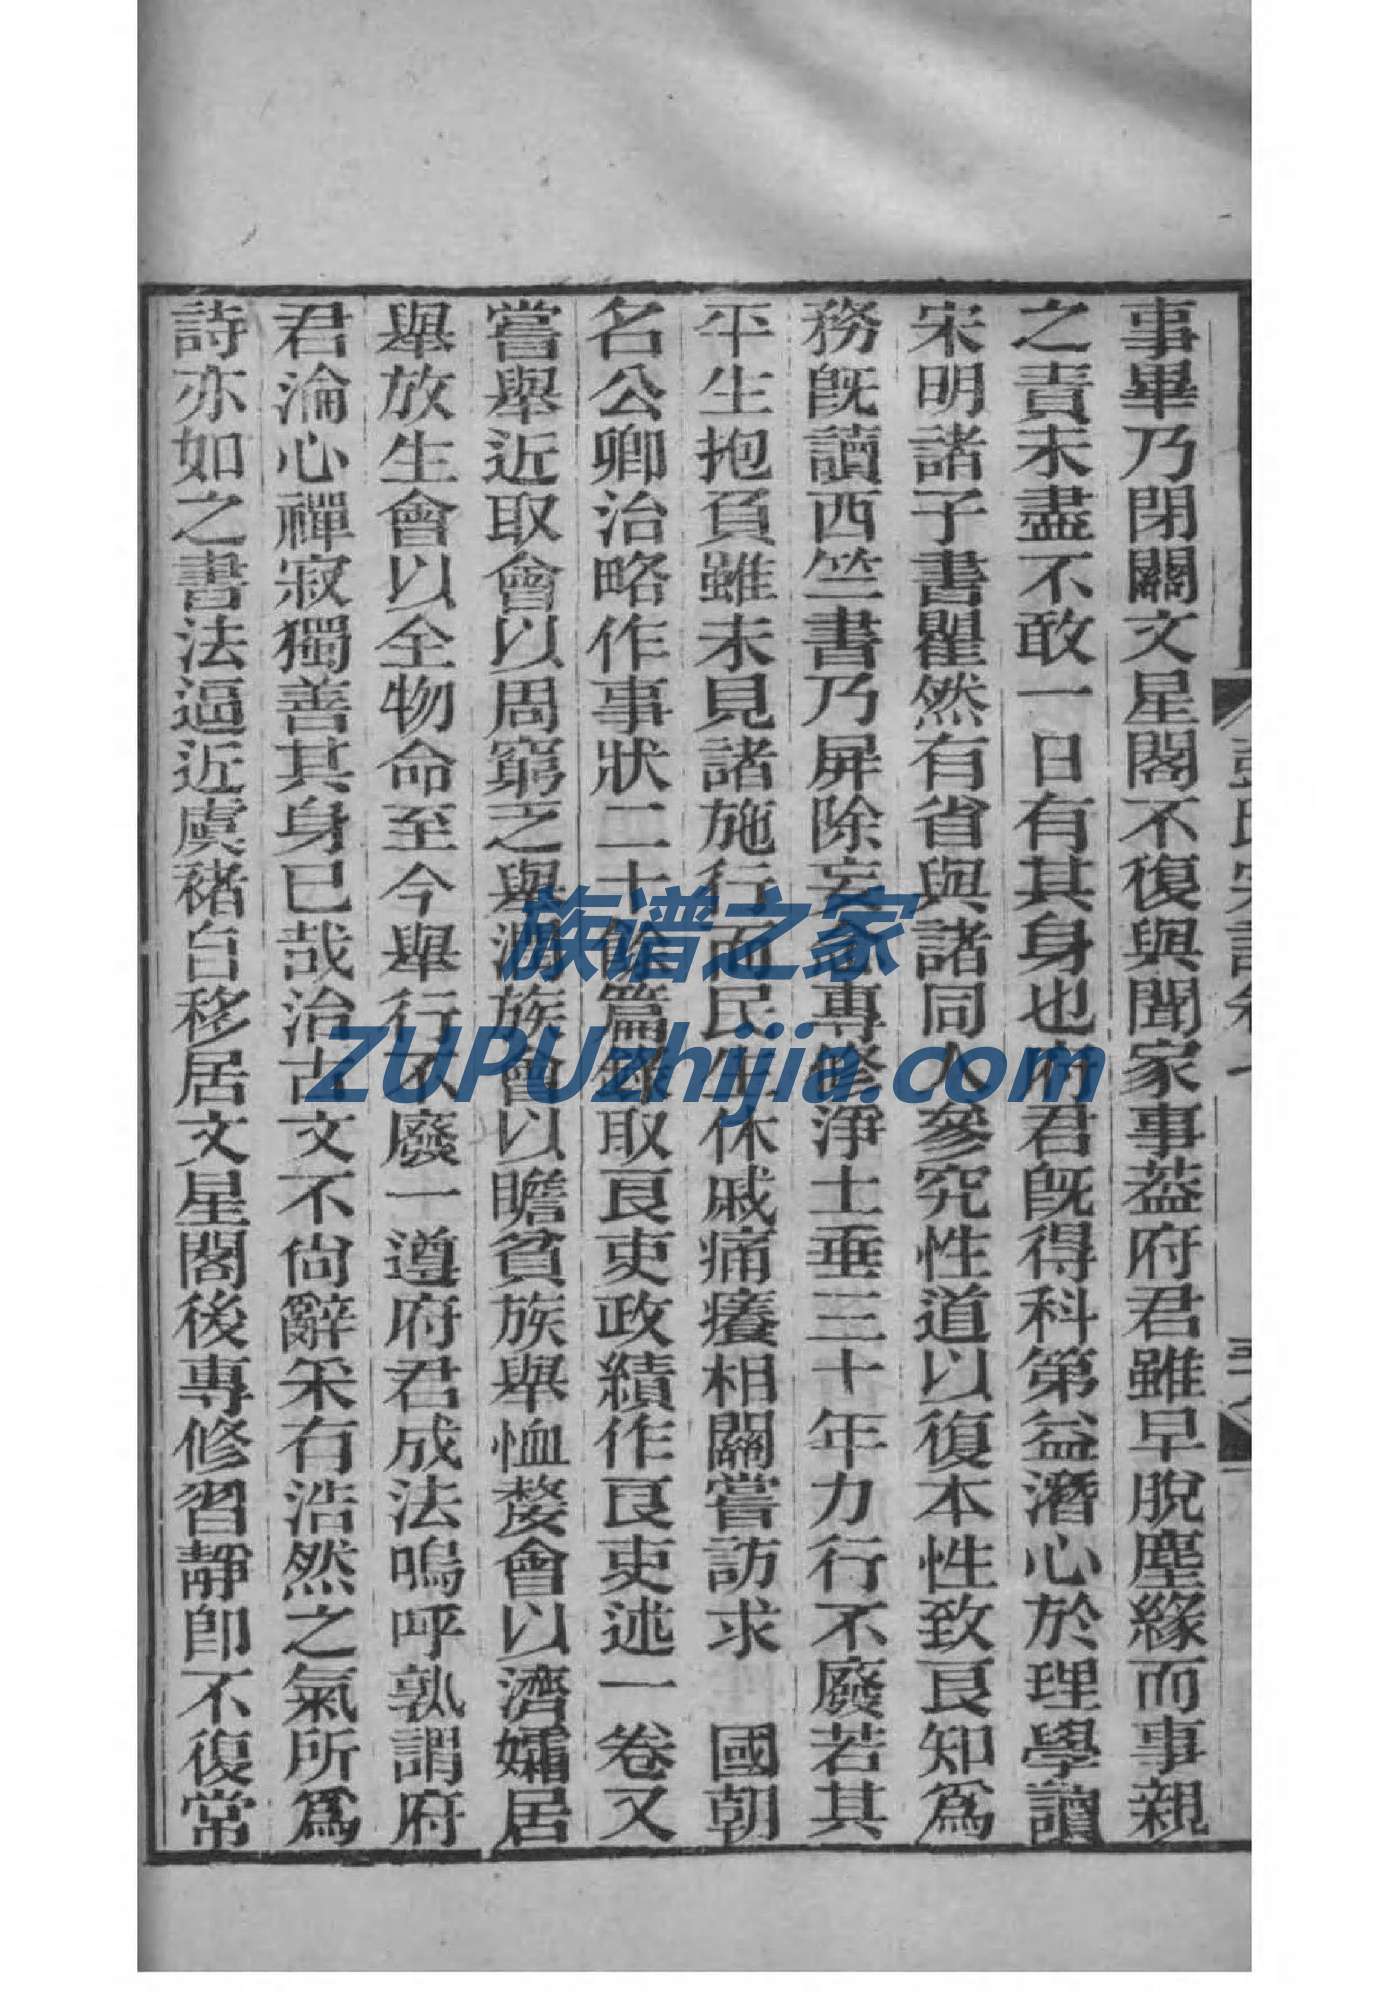 事畢乃閉關文星閣不復與聞家事葢府君雖早脫塵緣而事親
之責未盡不敢一日有其身也府君旣得科第益潛心於理學讀
宋明諸子書瞿然有省與諸同人參究性道以復本性致良知爲
務旣讀西竺書乃屏除妄念專修淨土垂三十年力行不廢若其
平生抱負雖未見諸施行而民生休戚痛癢相關嘗訪求 國朝
名公卿治略作事狀二十餘篇錄取良吏政績作良吏述一卷又
嘗舉近取會以周窮乏舉潤族會以贍貧族舉恤嫠會以濟孀居
舉放生會以全物命至今舉行不廢一遵府君成法嗚呼孰謂府
君淪心禪寂獨善其身已哉治古文不尙辭采有浩然之氣所爲
詩亦如之書法逼近虞褚自移居文星閣後專修習靜卽不復常
族谱之家
ZUPUzhijia.com